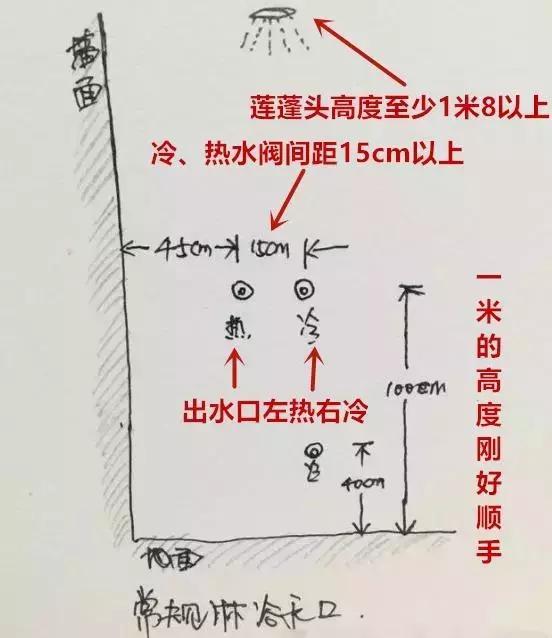 墙面
莲蓬头高度至少1米8以上
冷、热水阀间距15cm以上
45cm
15cm
热
冷
出水口左热右冷
100cm
一米的高度刚好顺手
冷
40cm
地面
常规淋浴水口.